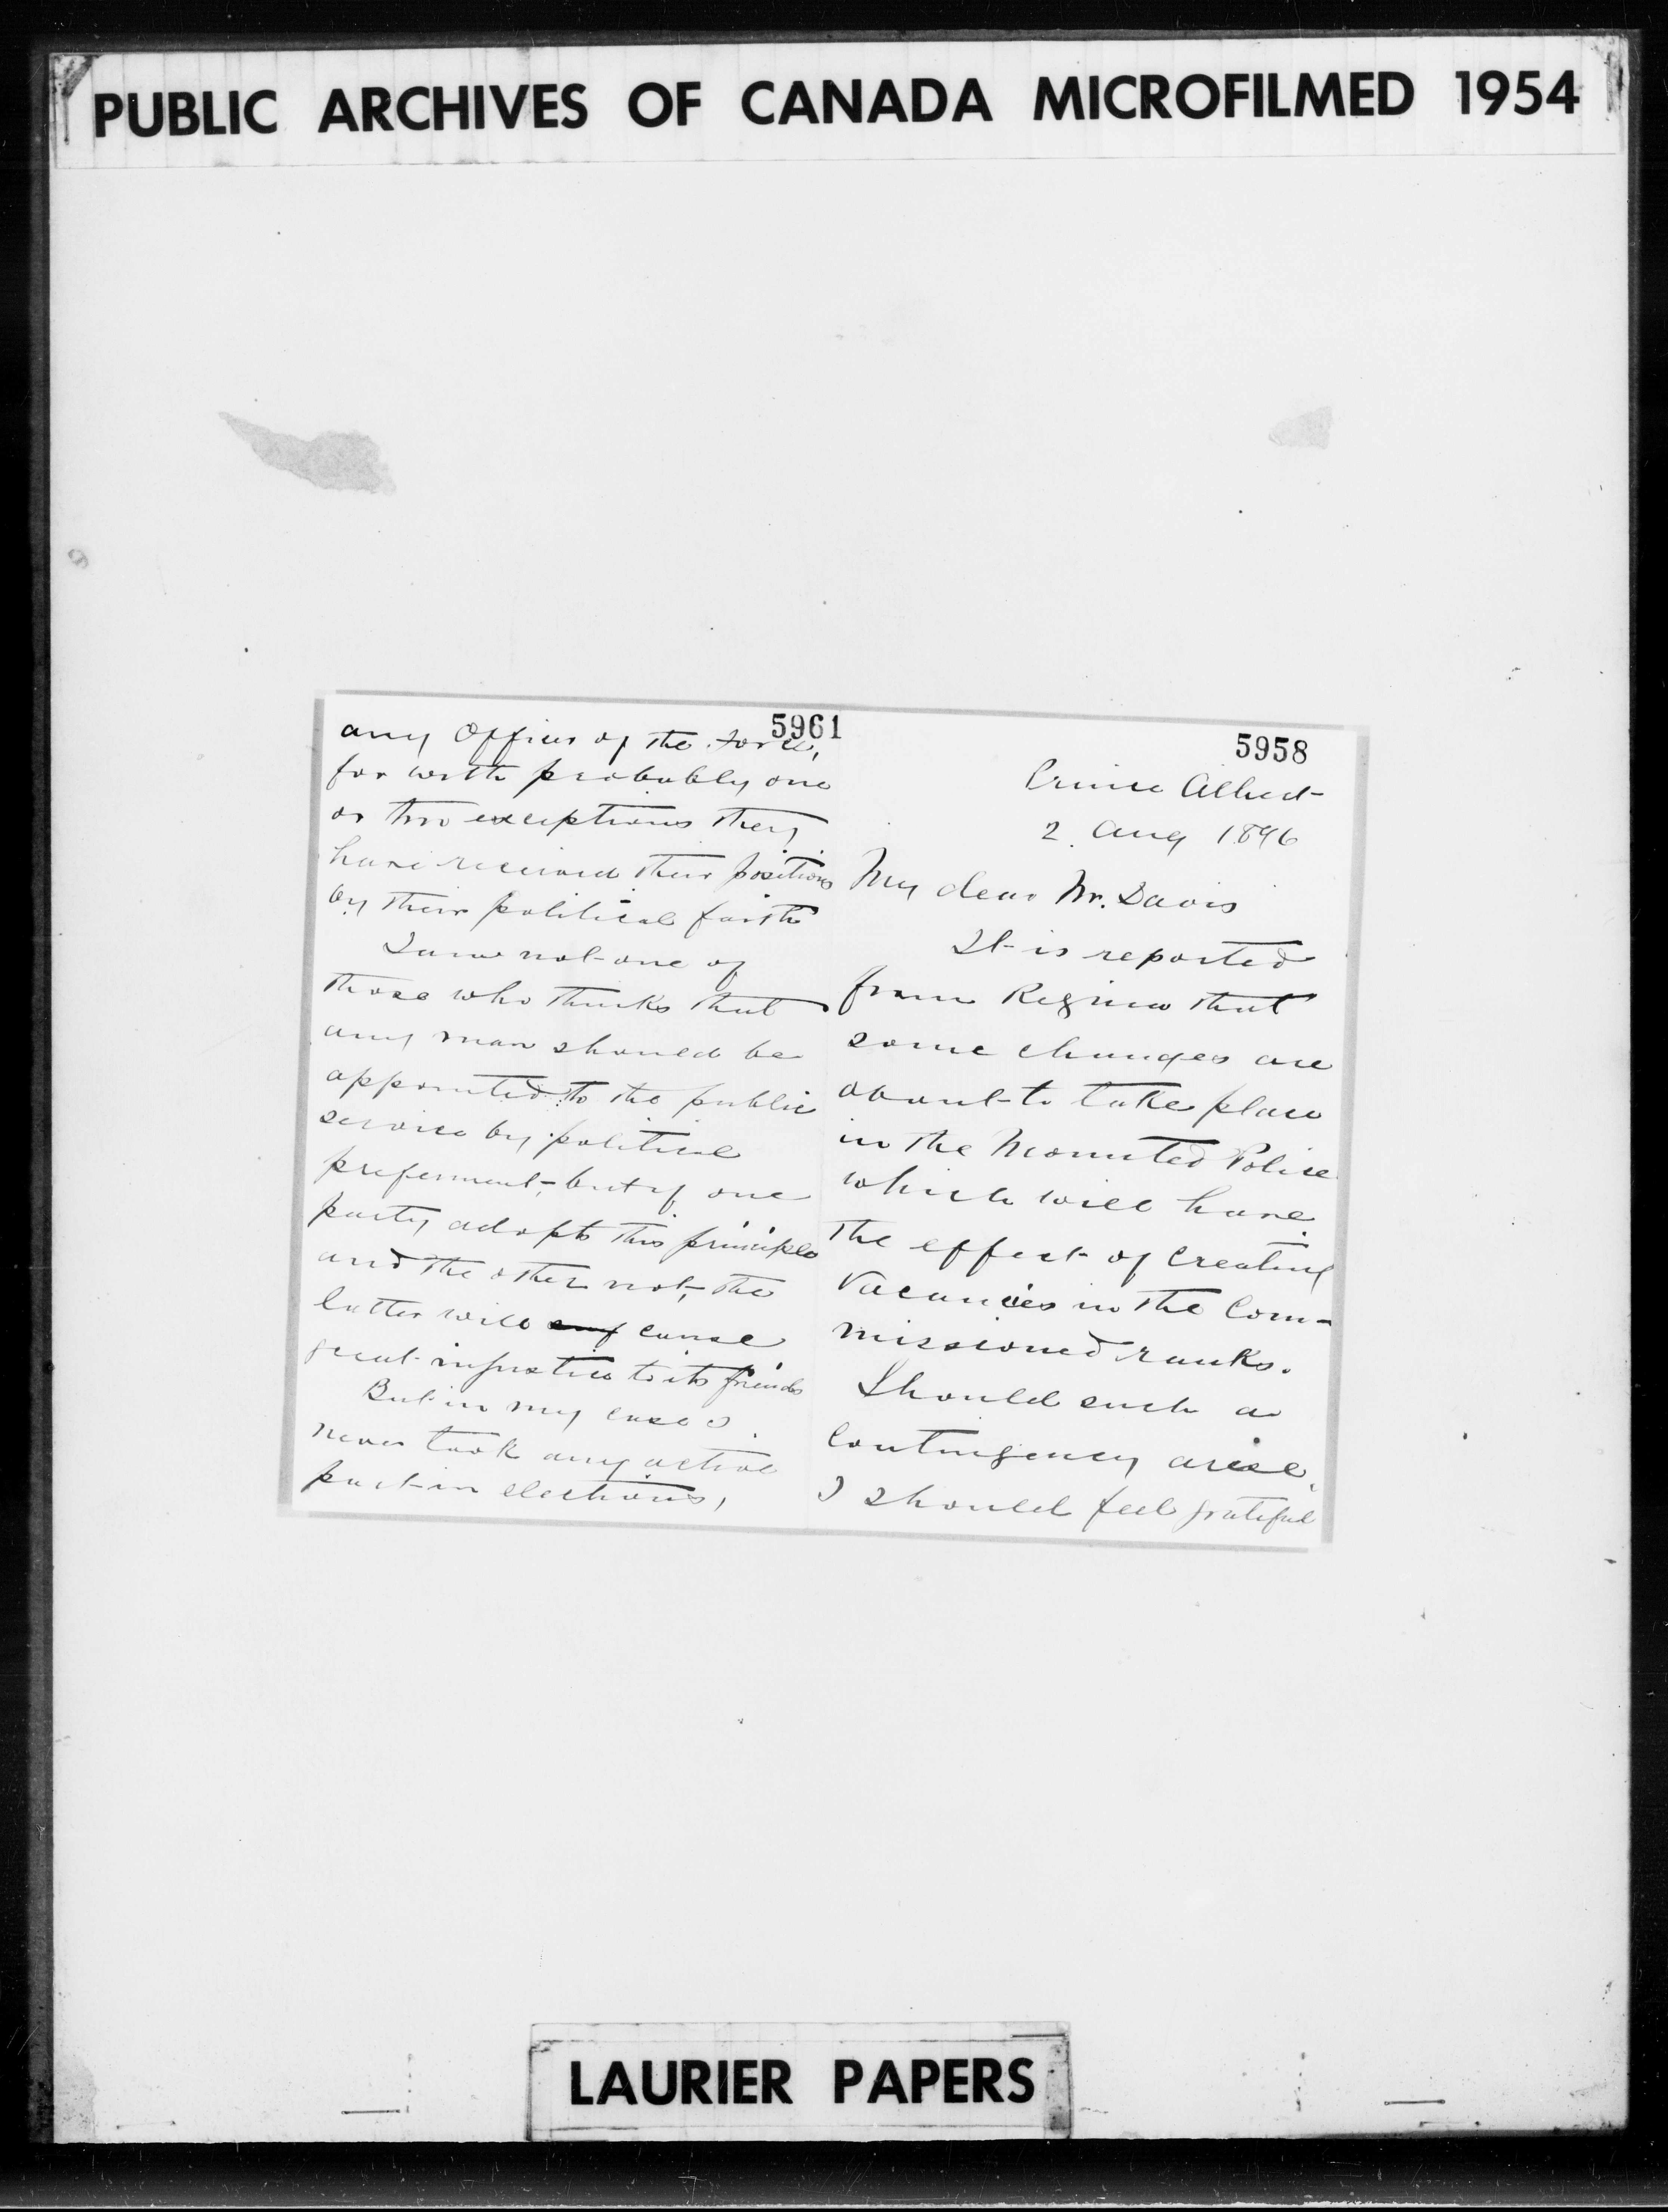 PUBLIC ARCHIVES OF CANADA MICROFILMED 1954
5961
any Officer of the Force,
for with probably one
or two exceptions they
have received their positions
by their political faith
I am not one of
those who thinks that
any man should be
appointed to the public
service by political
preferment, but if one
party adopts this principle
and the other not, the
latter will cause
great injustice to its friends
But in my case I
never took any active
part in elections,
5958
Prince Albert
2 Aug 1896
My dear Mr. Davis
It is reported
from Regina that
some changes are
about to take place
in the Mounted Police
which will have
the effect of creating
vacancies in the Com-
missioned ranks.
Should such a
contingency arise,
I should feel grateful
LAURIER PAPERS